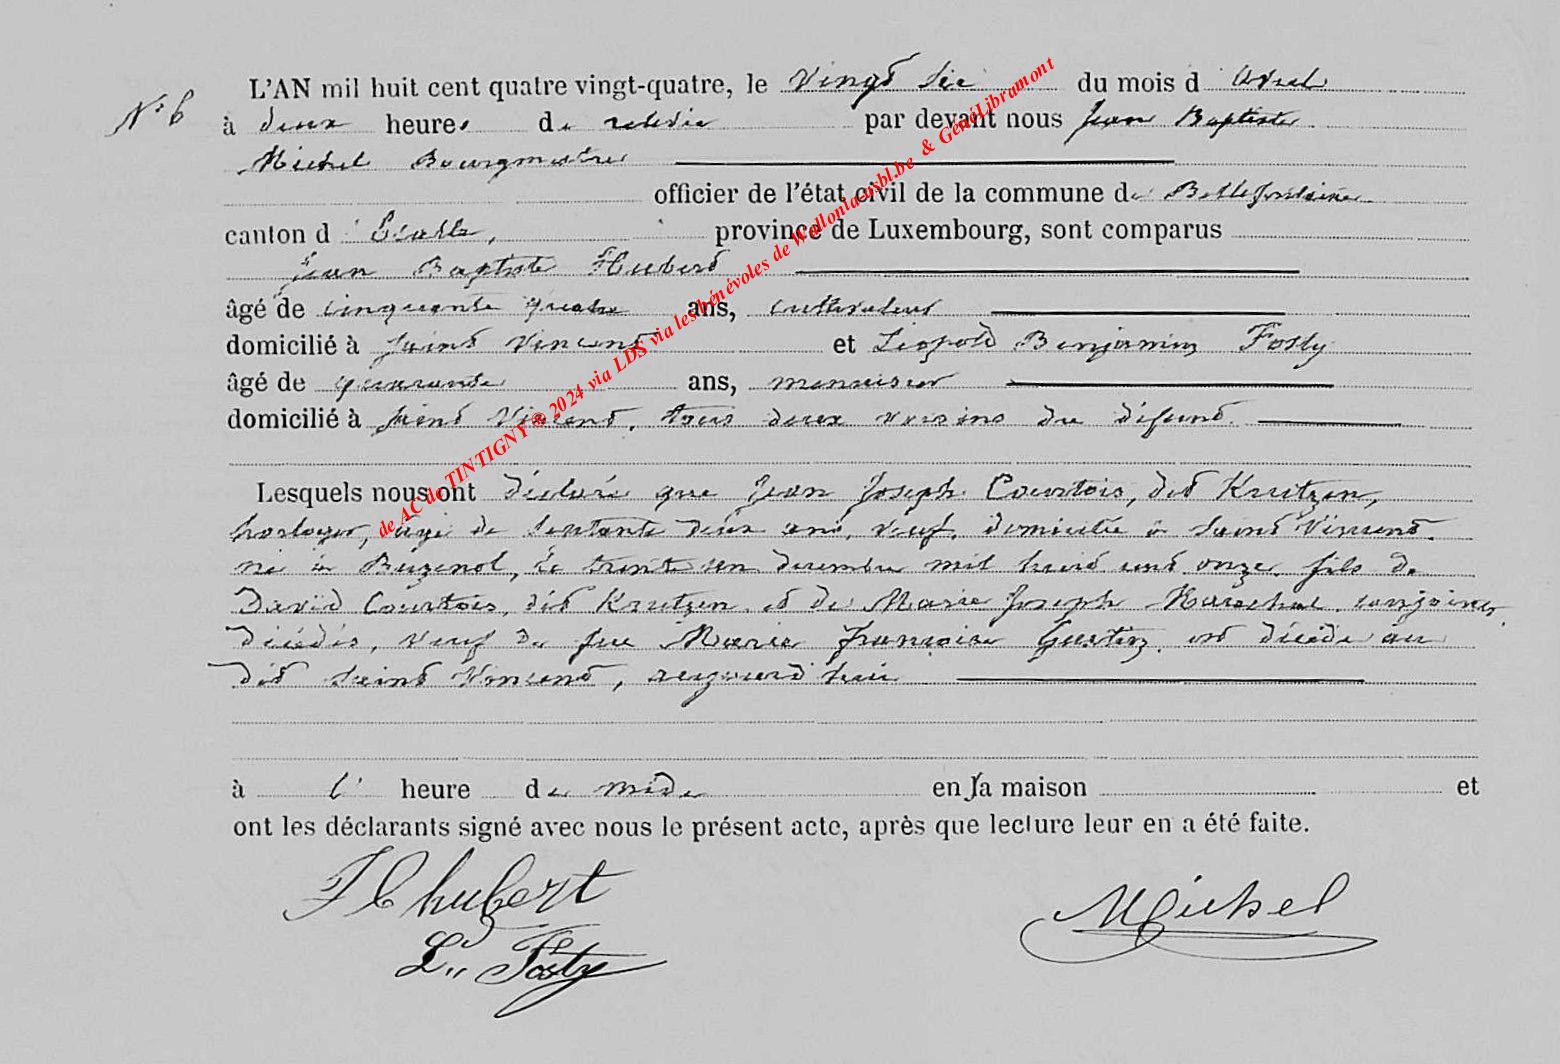 N° 6
L'AN mil huit cent quatre vingt-quatre, le vingt six du mois d'avril
à deux heures de relevée par devant nous Jean Baptiste
Michel Bourgmestre
officier de l'état civil de la commune de Bellefontaine
canton d'Etalle, province de Luxembourg, sont comparus
Jean Baptiste Hubert
âgé de cinquante quatre ans, cultivateur
domicilié à Saint Vincent et Léopold Benjamin Fosty
âgé de quarante ans, menuisier
domicilié à Saint Vincent, tous deux voisins du défunt.
Lesquels nous ont déclaré que Jean Joseph Courtois, dit Krutzen,
horloger, âgé de septante deux ans, veuf, domicilié à Saint Vincent.
né à Buzenol, le trente un décembre mil huit cent onze, fils de
David Courtois, dit Krutzen et de Marie Joseph Maréchal, conjoints
décédés, veuf de feue Marie Françoise Gustin, est décédé au
dit Saint Vincent, aujourd'hui
à l' heure de midi en sa maison et
ont les déclarants signé avec nous le présent acte, après que lecture leur en a été faite.
Hubert
L. Fosty
Michel
de AC de TINTIGNY ® 2024 via LDS via les bénévoles de Wallonia-asbl.be & GénéLibramont